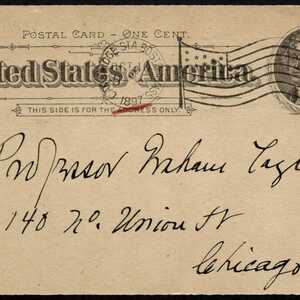 POSTAL CARD – ONE CENT.
ted States of America.
1897
THIS SIDE IS FOR THE ADDRESS ONLY.
Professor Graham
140 No. Union St
Chicago